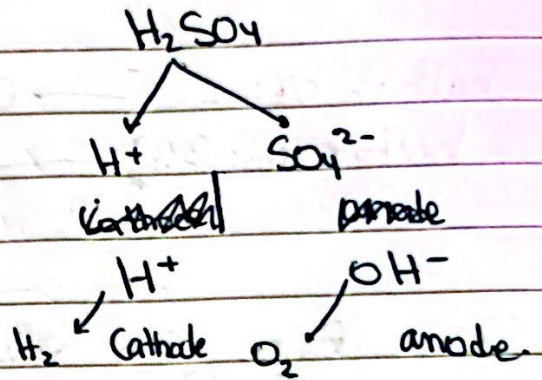 H₂SO₄
H⁺ SO₄²⁻
H⁺ OH⁻
H₂ Cathode O₂ anode.